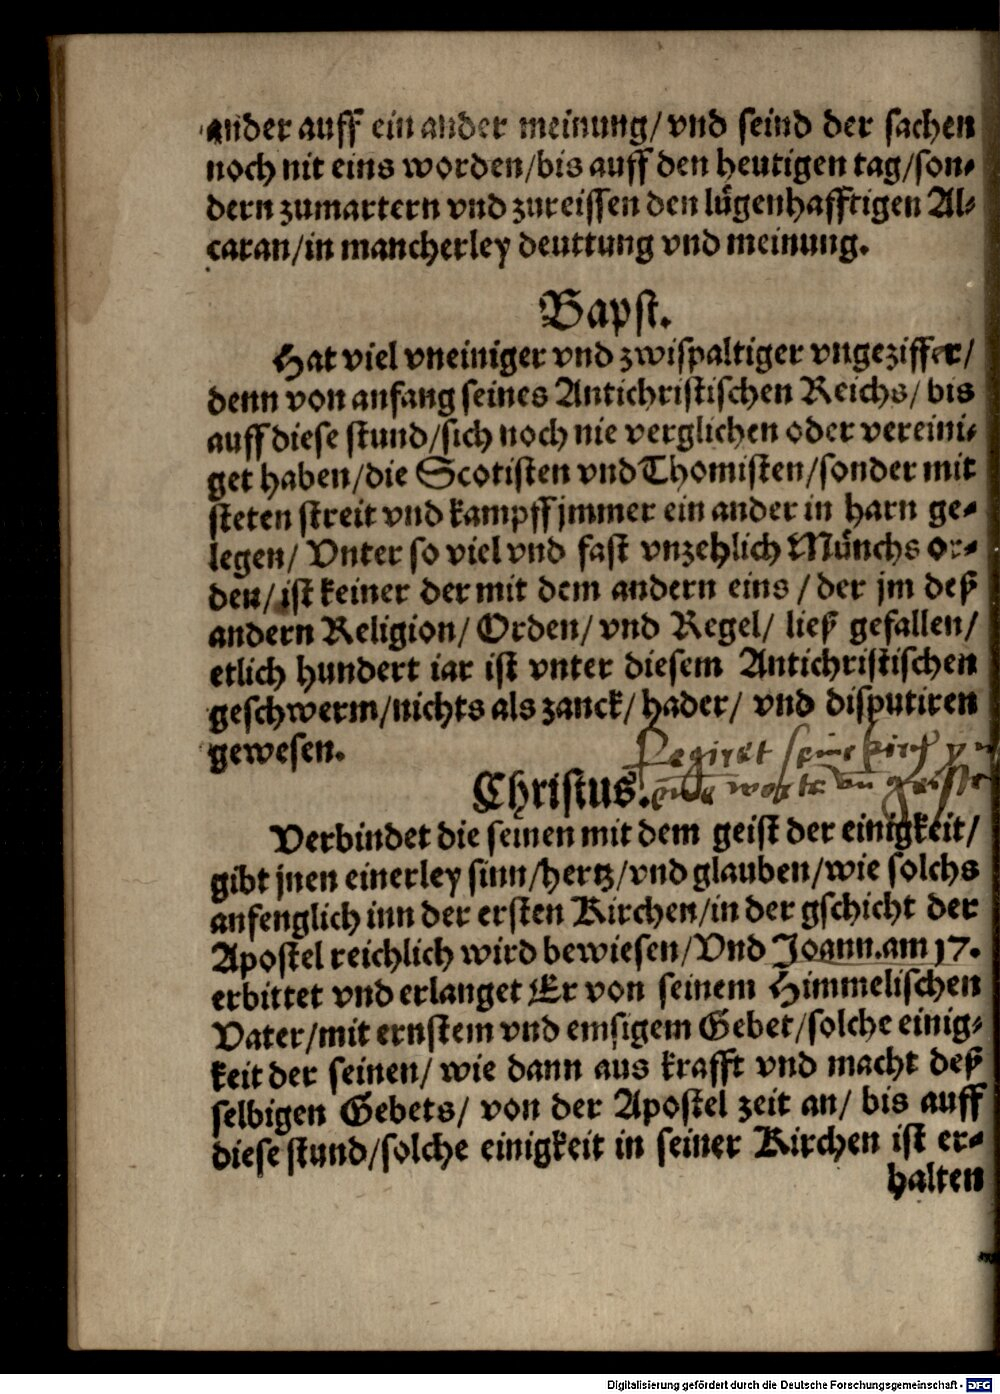 ander auff ein ander meinung/ vnd seind der sachen
noch nit eins worden/bis auff den heutigen tag/son⸗
dern zumartern vnd zureissen den lügenhafftigen Al⸗
caran/in mancherley deuttung vnd meinung.
Bapst.
Hat viel vneiniger vnd zwispaltiger vngeziffer/
denn von anfang seines Antichristischen Reichs/ bis
auff diese stund/sich noch nie verglichen oder vereini⸗
get haben/die Scotisten vnd Thomisten/sonder mit
steten streit vnd kampff jmmer ein ander in harn ge⸗
legen/ Vnter so viel vnd fast vnzehlich Münchs or⸗
den/ist keiner der mit dem andern eins / der jm deß
andern Religion/ Orden/ vnd Regel/ ließ gefallen/
etlich hundert iar ist vnter diesem Antichristischen
geschwerm/nichts als zanck/ hader/ vnd disputiren
gewesen.
Regiret seine kirch
Christus. worte vn geiste
Verbindet die seinen mit dem geist der einigkeit/
gibt jnen einerley sinn/hertz/vnd glauben/wie solchs
anfenglich inn der ersten Kirchen/in der gschicht der
Apostel reichlich wird bewiesen/Vnd Joann.am 17.
erbittet vnd erlanget Er von seinem Himmelischen
Vater/mit ernstem vnd emsigem Gebet/solche einig⸗
keit der seinen/ wie dann aus krafft vnd macht deß
selbigen Gebets/ von der Apostel zeit an/ bis auff
diese stund/solche einigkeit in seiner Kirchen ist er⸗
halten
Digitalisierung gefördert durch die Deutsche Forschungsgemeinschaft - DFG